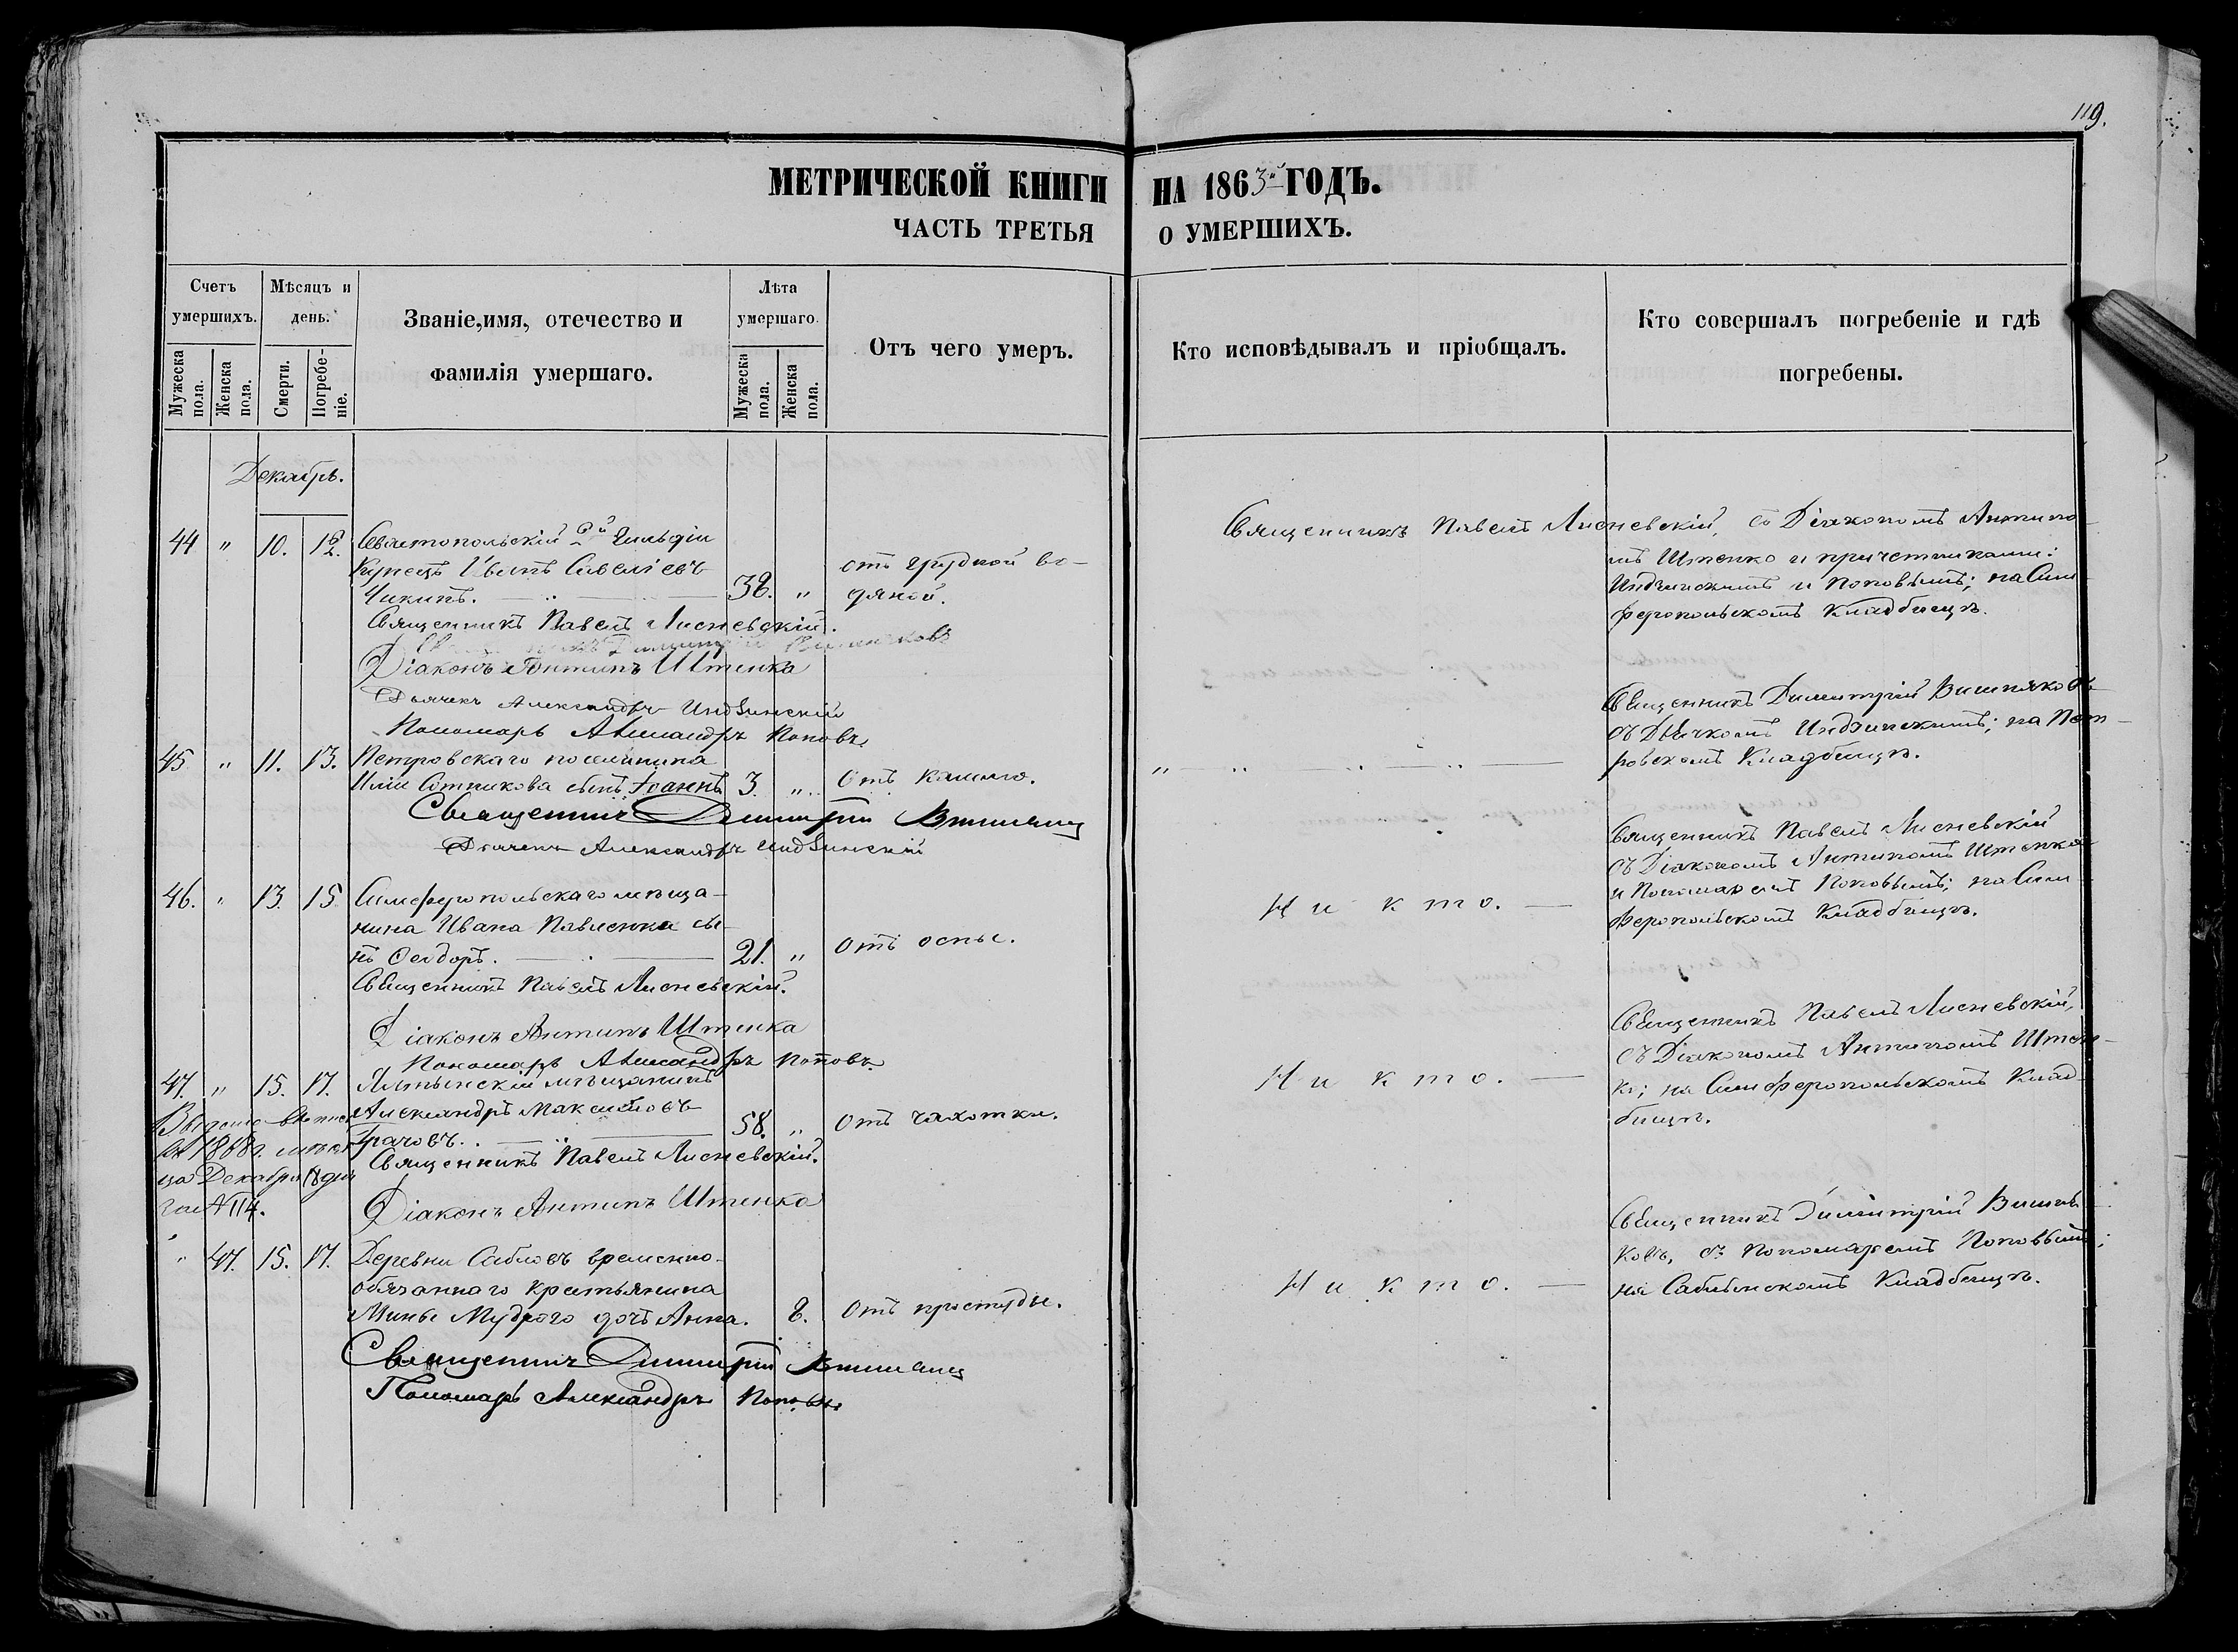 119.
МЕТРИЧЕСКОЙ КНИГИ НА 1863й ГОДЪ.
ЧАСТЬ ТРЕТЬЯ О УМЕРШИХЪ.
Счетъ умершихъ.
Мужеска пола.
Женска пола.
Мѣсяцъ и день.
Смерти.
Погребеніе.
Званіе, имя, отечество и фамилія умершаго.
Лѣта умершаго.
Мужеска пола.
Женска пола.
Отъ чего умеръ.
Кто исповѣдывалъ и пріобщалъ.
Кто совершалъ погребеніе и гдѣ погребены.
Декабрь.
44 " 10. 12. Севастопольскій 2й Гильдіи
Купецъ Иванъ Савельевъ
Чикинъ. 38. "
отъ грудной во-
дяной.
Священникъ Павелъ Лисневскій, съ Діакономъ Антипо-
мъ Штепко и причетниками:
Индзинскимъ и Поповымъ; на Сим-
феропольскомъ Кладбищѣ.
Священникъ Павелъ Лисневскій.
Діаконъ Антипъ Штепка
Дьячекъ Александръ Индзинскій
Пономарь Александръ Поповъ
45 " 11. 13. Петровскаго поселянина
Иліи Сотникова сынъ Іоаннъ 3. " Отъ кашлю.
Священникъ Димитрій Вишняковъ
съ Дьячкомъ Индзинскимъ; на Пет-
ровскомъ Кладбищѣ.
Священникъ Димитрій
Дьячекъ Александръ Индзинскій
46. " 13. 15. Симферопольскаго мѣща-
нина Ивана Павленка сы-
нъ Ѳеодоръ. 21. " Отъ оспы.
Никто.
Священникъ Павелъ Лисневскій
съ Діакономъ Антипомъ Штепко
и Пономаремъ Поповымъ; на Сим-
феропольскомъ Кладбищѣ.
Священникъ Павелъ Лисневскій.
Діаконъ Антипъ Штепка
Пономарь Александръ Поповъ
47. " 15. 17. Ялтынскій мѣщанинъ
Александръ Максимовъ
Грачовъ. 58. " Отъ чахотки.
Никто.
Священникъ Павелъ Лисневскій,
съ Діакономъ Антипомъ Штеп-
ко; на Симферопольскомъ Клад-
бищѣ.
1868 г.
Декабря 18 дня
№ 114.
Священникъ Павелъ Лисневскій.
Діаконъ Антипъ Штепка
" 47. 15. 17. Деревни Сабловъ временно-
обязаннаго крестьянина
Мины Мудраго дочь Анна. 8. Отъ простуды.
Никто.
Священникъ Димитрій Вишня-
ковъ, съ Пономаремъ Поповымъ;
на Саблынскомъ Кладбищѣ.
Священникъ Димитрій
Пономарь Александръ Поповъ